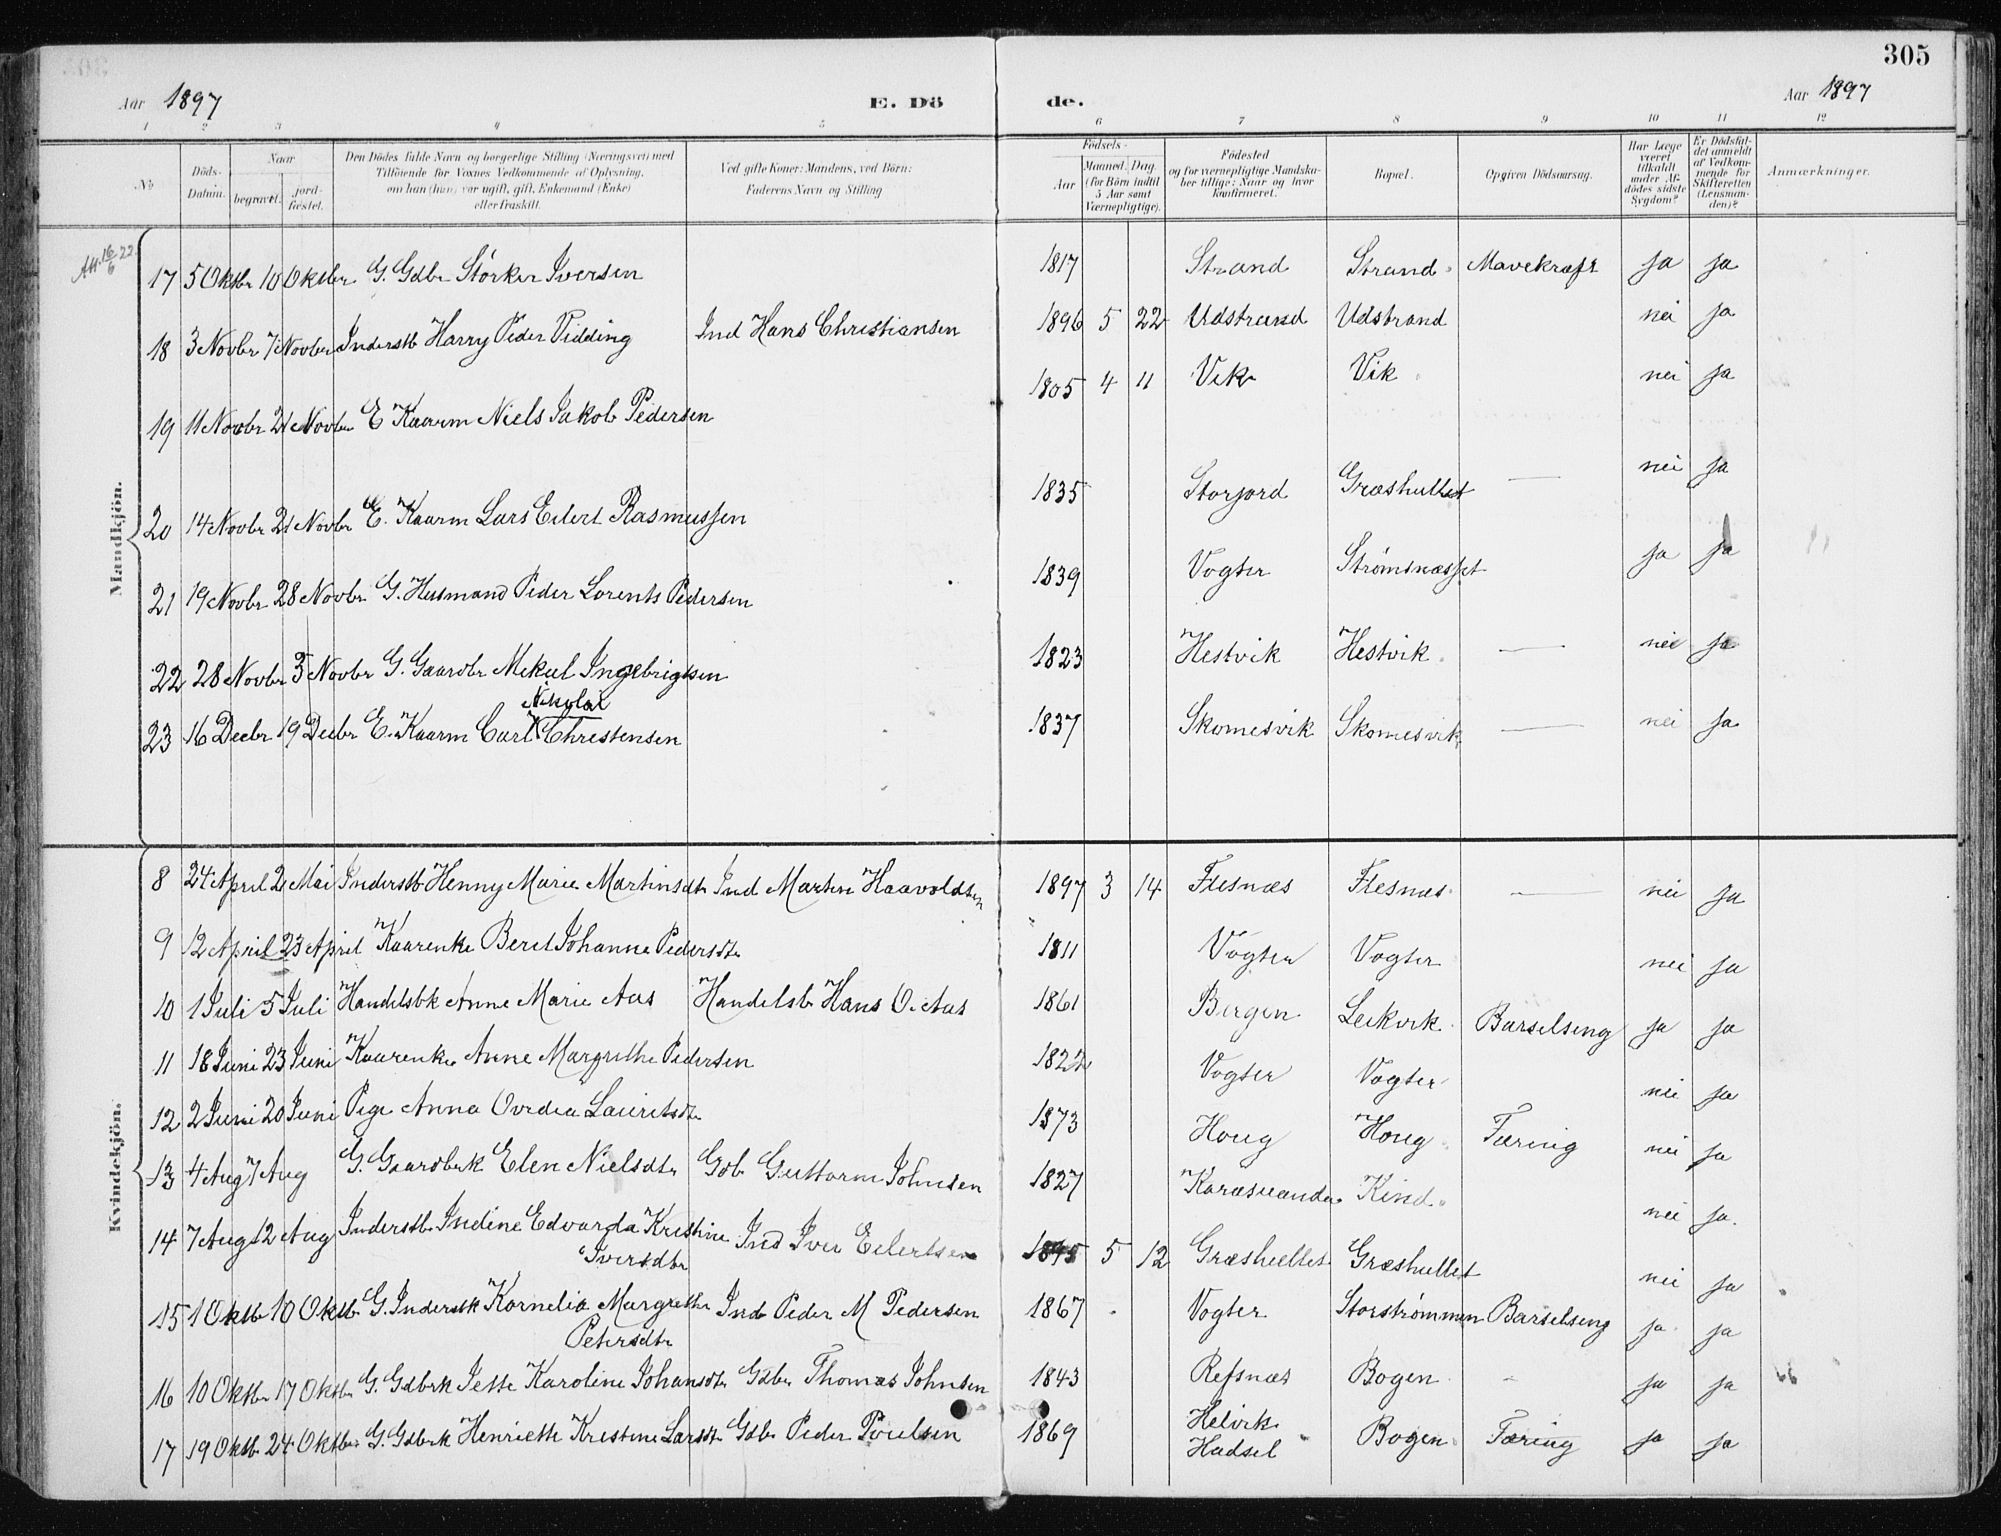 305
Aar 1897 E. Dö de. Aar 1897
1 2 3 4 5 6 7 8 9 10 11 12
No
Döds-Datum.
Naar begravet. jord-fæstet.
Den Dödes fulde Navn og borgerlige Stilling (Næringsvei) med Tilföiende for Voxnes Vedkommende af Oplysning, om han (hun) var ugift, gift, Enkemand (Enke) eller fraskilt.
Ved gifte Koner: Mandens, ved Börn: Faderens Navn og Stilling
Födsels- Aar Maaned. Dag. (for Börn indtil 5 Aar samt Værnepligtige).
Födested og for værnepligtige Mandskaber tillige: Naar og hvor konfirmeret.
Bopæl.
Opgiven Dödsaarsag.
Har Læge været tilkaldt under Afdödes sidste Sygdom?
Er Dödsfaldet anmeldt af Vedkommende for Skifteretten (Lensmanden)?
Anmærkninger.
Att. 16/6 22
Mandkjön.
17 5 Oktbr 10 Oktbr G. Gdbr Störker Iversen 1817 Strand Strand Mavekræft ja ja
18 3 Novbr 7 Novbr Inderstb Harry Peder Vidding Ind Hans Christiansen 1896 5 22 Udstrand Udstrand nei ja
19 11 Novbr 21 Novbr E Kaarm Niels Jakob Pedersen 1805 4 11 Vik Vik nei ja
20 14 Novbr 21 Novbr E. Kaarm Lars Eilert Rasmussen 1835 Storjord Græshullet — nei ja
21 19 Novbr 28 Novbr G. Husmand Peder Lorents Pedersen 1839 Vogter Strømsnæsset ja ja
22 28 Novbr 5 Novbr G. Gaardbr Mikal Ingebrigtsen 1823 Hestvik Hestvik — nei ja
Nikolai
23 16 Decbr 19 Decbr E. Kaarm Carl Christensen 1837 Skomesvik Skomesvik — nei ja
Kvindekjön.
8 24 April 2 Mai Inderstb Henny Marie Martinsdtr Ind Martin Haavoldsen 1897 3 14 Flesnæs Flesnæs — nei ja
9 12 April 23 April Kaarenke Berit Johanna Pedersdtr 1811 Vogter Vogter nei ja
10 1 Juli 5 Juli Handelsbk Anne Marie Aas Handelsb Hans O. Aas 1861 Bergen Leikvik Barselseng ja ja
11 18 Juni 23 Juni Kaarenke Anne Margrethe Pedersen 1822 Vogter Vogter nei ja
12 2 Juni 20 Juni Pige Anna Ovedia Lauritsdtr 1873 Houg Houg Tæring nei ja
13 4 Aug 7 Aug G. Gaardbrk Elen Nielsdtr Gdb Guttorm Johnsen 1827 Karasuanda Kind nei ja
14 7 Aug 12 Aug Inderstb Indine Edvarda Kristine Ind Iver Eilertsen 1895 5 12 Græshullet Græshullet nei ja
Iversdtr
15 1 Oktb 10 Oktb G. Inderstk Kornelia Margrethe Ind Peder M Pedersen 1867 Vogter Storstrømmen Barselseng ja ja
Petersdtr
16 10 Oktbr 17 Oktbr G. Gdbrk Jette Karoline Johansdtr Gdbr Thomas Johnsen 1843 Refsnæs Bogen - ja ja
17 19 Oktb 24 Oktbr G. Gdbrk Henriette Kristine Larsdtr Gdb Peder Poulsen 1869 Helvik Hadsel Bogen Tæring ja ja